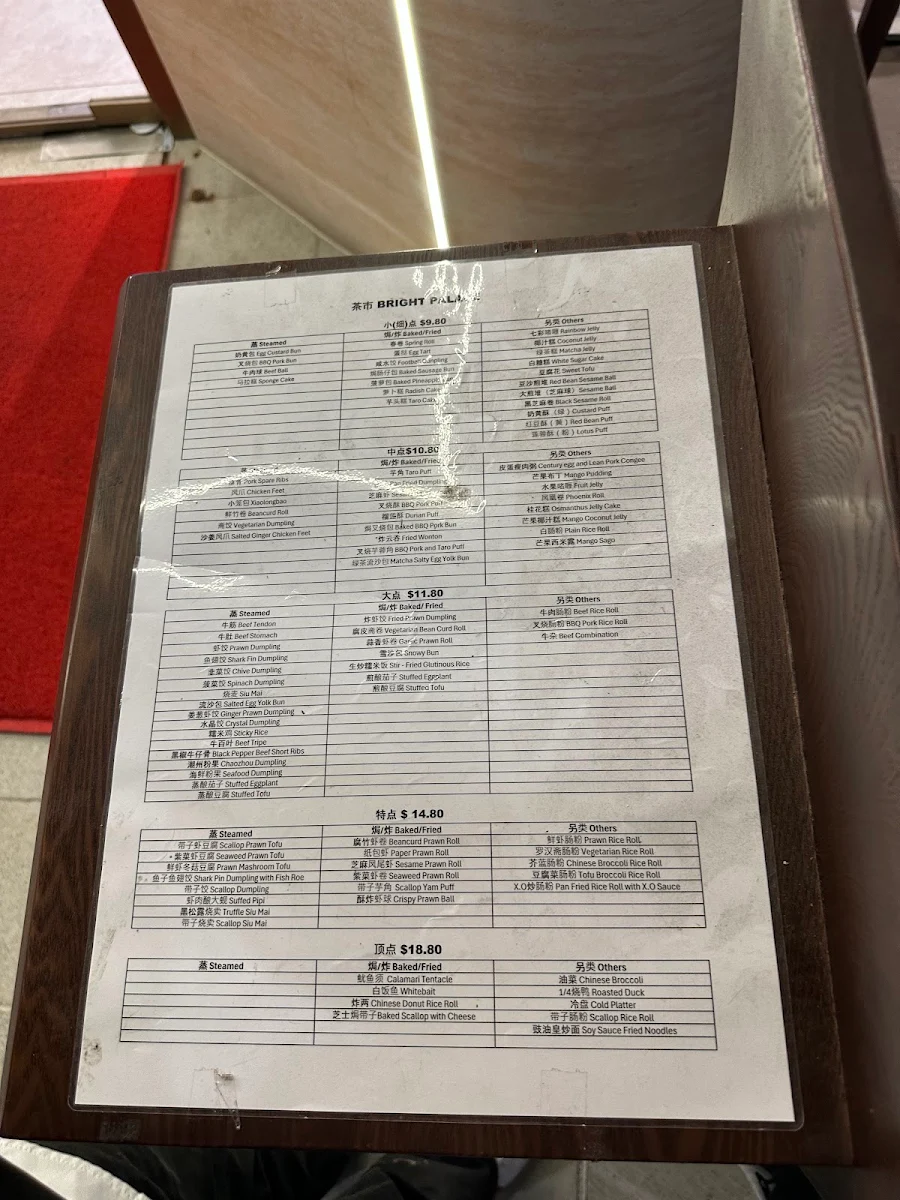 茶市 BRIGHT
小(细)点 $9.80
蒸 Steamed
奶黄包 Egg Custard Bun
叉烧包 BBQ Pork Bun
牛肉球 Beef Ball
马拉糕 Sponge Cake
焗/炸 Baked/Fried
春卷 Spring Roll
蛋挞 Egg Tart
咸水饺 Football Dumpling
焗肠仔包 Baked Sausage Bun
菠萝包 Baked Pineapple
萝卜糕 Radish Cake
芋头糕 Taro Cake
另类 Others
七彩啫喱 Rainbow Jelly
椰汁糕 Coconut Jelly
绿茶糕 Matcha Jelly
白糖糕 White Sugar Cake
豆腐花 Sweet Tofu
豆沙煎堆 Red Bean Sesame Ball
大煎堆（芝麻球）Sesame Ball
黑芝麻卷 Black Sesame Roll
奶黄酥（绿）Custard Puff
红豆酥（黄）Red Bean Puff
莲蓉酥（粉）Lotus Puff
中点$10.80
Pork Spare Ribs
凤爪 Chicken Feet
小笼包 Xiaolongbao
鲜竹卷 Beancurd Roll
斋饺 Vegetarian Dumpling
沙姜凤爪 Salted Ginger Chicken Feet
焗/炸 Baked/Fried
芋角 Taro Puff
Pan Fried Dumpling
芝麻虾
叉烧酥 BBQ Pork
榴莲酥 Durian Puff
焗叉烧包 Baked BBQ Pork Bun
炸云吞 Fried Wonton
叉烧芋蓉角 BBQ Pork and Taro Puff
绿茶流沙包 Matcha Salty Egg Yolk Bun
另类 Others
皮蛋瘦肉粥 Century egg and Lean Pork Congee
芒果布丁 Mango Pudding
水果啫喱 Fruit Jelly
凤凰卷 Phoenix Roll
桂花糕 Osmanthus Jelly Cake
芒果椰汁糕 Mango Coconut Jelly
白肠粉 Plain Rice Roll
芒果西米露 Mango Sago
大点 $11.80
蒸 Steamed
牛筋 Beef Tendon
牛肚 Beef Stomach
虾饺 Prawn Dumpling
鱼翅饺 Shark Fin Dumpling
韭菜饺 Chive Dumpling
菠菜饺 Spinach Dumpling
烧卖 Siu Mai
流沙包 Salted Egg Yolk Bun
姜葱虾饺 Ginger Prawn Dumpling
水晶饺 Crystal Dumpling
糯米鸡 Sticky Rice
牛百叶 Beef Tripe
黑椒牛仔骨 Black Pepper Beef Short Ribs
潮州粉果 Chaozhou Dumpling
海鲜粉果 Seafood Dumpling
蒸酿茄子 Stuffed Eggplant
蒸酿豆腐 Stuffed Tofu
焗/炸 Baked/ Fried
炸虾饺 Fried Prawn Dumpling
腐皮斋卷 Vegetarian Bean Curd Roll
蒜香虾卷 Garlic Prawn Roll
雪沙包 Snowy Bun
生炒糯米饭 Stir - Fried Glutinous Rice
煎酿茄子 Stuffed Eggplant
煎酿豆腐 Stuffed Tofu
另类 Others
牛肉肠粉 Beef Rice Roll
叉烧肠粉 BBQ Pork Rice Roll
牛杂 Beef Combination
特点 $ 14.80
蒸 Steamed
带子虾豆腐 Scallop Prawn Tofu
紫菜虾豆腐 Seaweed Prawn Tofu
鲜虾冬菇豆腐 Prawn Mashroom Tofu
鱼子鱼翅饺 Shark Pin Dumpling with Fish Roe
带子饺 Scallop Dumpling
虾肉酿大蚬 Suffed Pipi
黑松露烧卖 Truffle Siu Mai
带子烧卖 Scallop Siu Mai
焗/炸 Baked/Fried
腐竹虾卷 Beancurd Prawn Roll
纸包虾 Paper Prawn Roll
芝麻凤尾虾 Sesame Prawn Roll
紫菜虾卷 Seaweed Prawn Roll
带子芋角 Scallop Yam Puff
酥炸虾球 Crispy Prawn Ball
另类 Others
鲜虾肠粉 Prawn Rice Roll
罗汉斋肠粉 Vegetarian Rice Roll
芥蓝肠粉 Chinese Broccoli Rice Roll
豆腐菜肠粉 Tofu Broccoli Rice Roll
X.O炒肠粉 Pan Fried Rice Roll with X.O Sauce
顶点 $18.80
蒸 Steamed
焗/炸 Baked/Fried
鱿鱼须 Calamari Tentacle
白饭鱼 Whitebait
炸两 Chinese Donut Rice Roll
芝士焗带子Baked Scallop with Cheese
另类 Others
油菜 Chinese Broccoli
1/4烧鸭 Roasted Duck
冷盘 Cold Platter
带子肠粉 Scallop Rice Roll
豉油皇炒面 Soy Sauce Fried Noodles